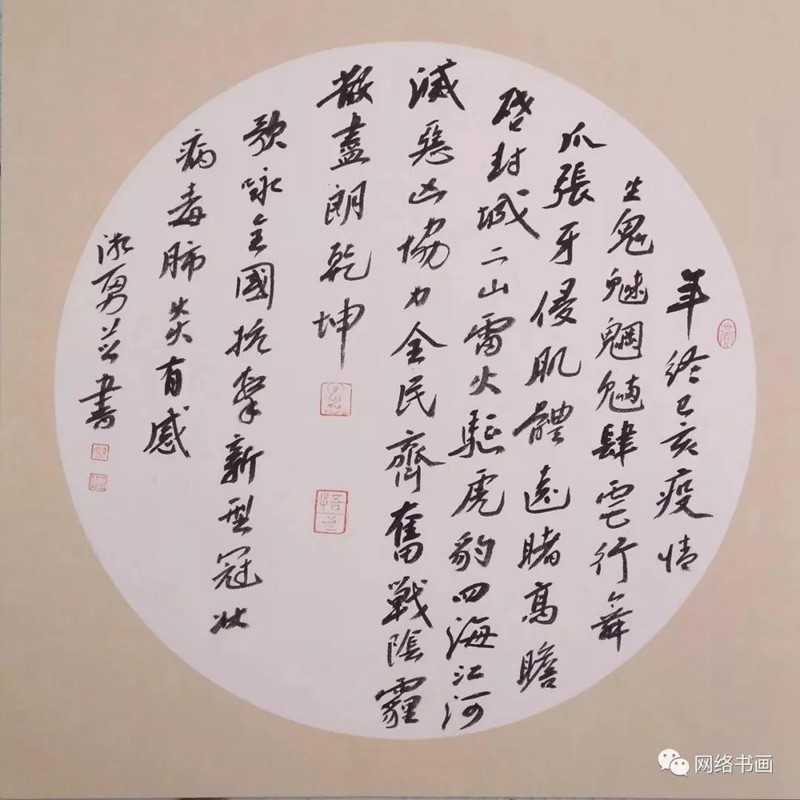 年终己亥疫情
生鬼魅魍魎肆雲行舞
爪張牙侵肌體遠睹高瞻
啓封城二山雷火驅虎豹四海江河
滅惡凶協力全民齊奮戰陰霾
散盡朗乾坤
歌咏全國抗擊新型冠狀
病毒肺炎有感
勇 書
网络书画